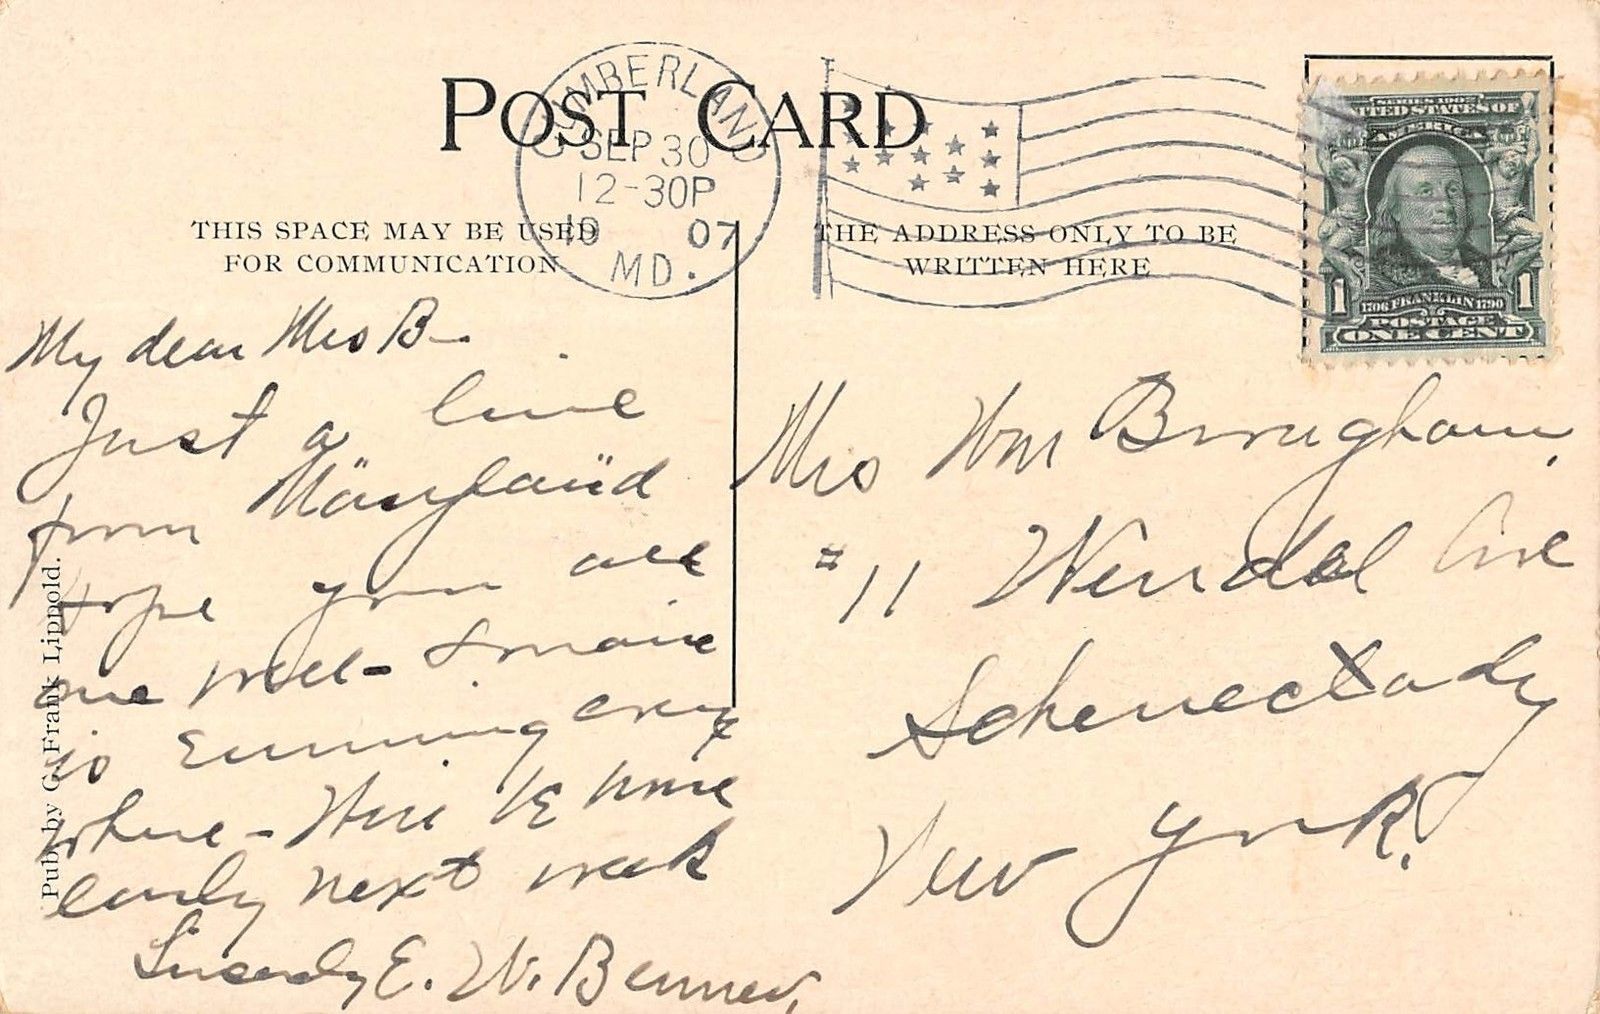 POST CARD
CUMBERLAND
SEP 30
12-30P
19 07
MD.
THIS SPACE MAY BE USED
FOR COMMUNICATION
THE ADDRESS ONLY TO BE
WRITTEN HERE
SERIES 1902
UNITED STATES OF
AMERICA
1 1706 FRANKLIN 1790 1
POSTAGE
ONE CENT
My dear Mrs B-
Just a line
from Maryland
hope you all
are well-
is running every
where - Will be home
early next week
Sincerely E. W.
Mrs Wm Brougham,
#11 Wendel Ave
Schenectady
New York.
Pub by G. Frank Lippold.